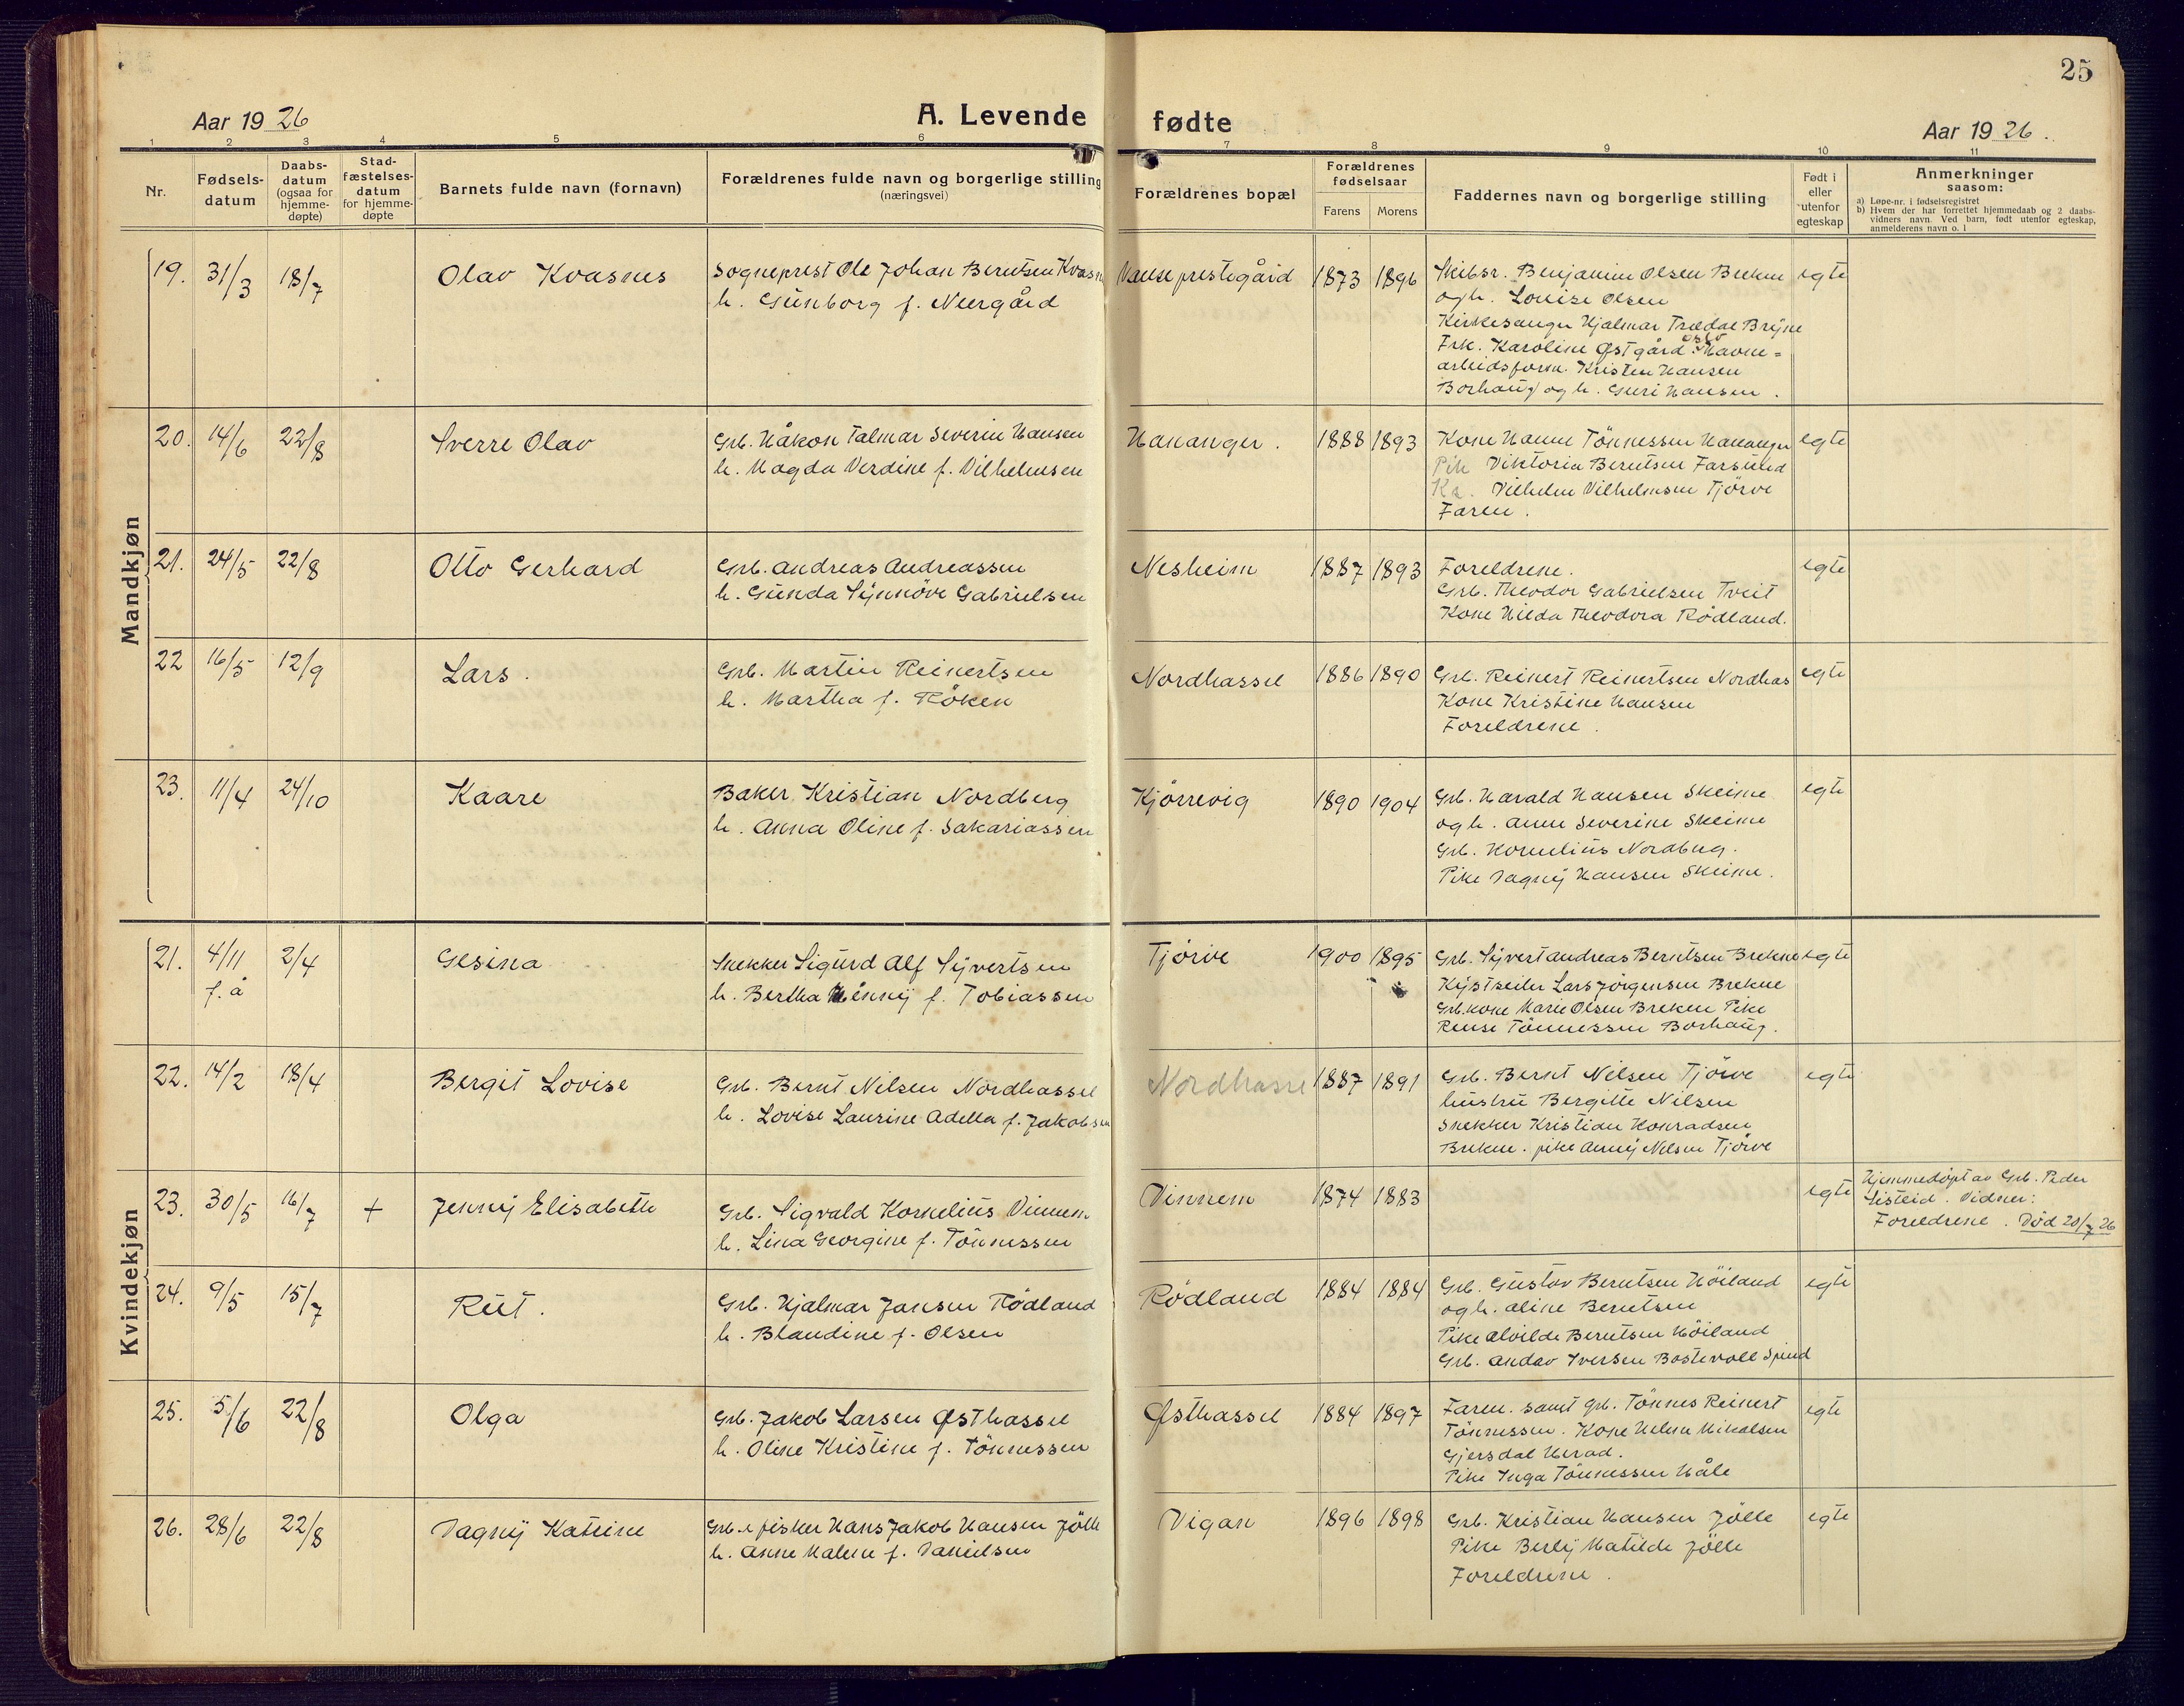 25
Aar 1926
A. Levende fødte
Aar 1926.
1 2 3 4 5 6 7 8 9 10 11
Nr.
Fødsels-
datum
Daabs-
datum
(ogsaa for
hjemme-
døpte)
Stad-
fæstelses-
datum
for hjemme-
døpte
Barnets fulde navn (fornavn)
Forældrenes fulde navn og borgerlige stilling
(næringsvei)
Forældrenes bopæl
Forældrenes
fødselsaar
Farens Morens
Faddernes navn og borgerlige stilling
Født i
eller
utenfor
egteskap
Anmerkninger
saasom:
a) Løpe-nr. i fødselsregistret
b) Hvem der har forrettet hjemmedaab og 2 daabs-
vidners navn. Ved barn, født utenfor egteskap,
anmelderens navn o. l
Mandkjøn
19. 31/3 18/7 Olav Kvasnes
Sogneprest Ole Johan Berntsen Kvasn
h. Gunborg f. Neergård
Vanse prestegård 1873 1896
Skibsr. Benjamin Olsen Brekne
og h. Louise Olsen
Kirkesanger Hjalmar Trædal Bryne
Frk. Karoline Østgård Oslo. Havne=
arbeidsform. Kristen Hansen
Borhaug og h. Guri Hansen.
egte
20. 14/6 22/8 Sverre Olav
Grb. Håkon Talmar Severin Hansen
h. Magda Verdine f. Vilhelmsen
Hananger. 1888 1893
Kone Hanne Tönnessen Hananger
Pik Viktoria Berntsen Farsund
Ka. Vilhelm Vilhelmsen Tjörve
Faren.
egte
21. 24/5 22/8 Otto Gerhard
Grb. Andreas Andreassen
h. Gunda Synnöve Gabrielsen
Nesheim 1887 1893
Foreldrene.
Grb. Theodor Gabrielsen Tveit
Kone Hilda Theodora Rödland.
egte
22 16/5 12/9 Lars.
Grb. Martin Reinertsen
h. Martha f. Röken
Nordhassel 1886 1890
Grb. Reinert Reinertsen Nordhas
Kone Kristine Hansen
Foreldrene.
egte
23. 11/4 24/10 Kaare
Baker Kristian Nordberg
h. Anna Oline f. Sakariassen
Kjörrevig 1890 1904
Grb. Harald Hansen Skeime
og h. Anne Severine Skeime
Grb. Kornelius Nordberg.
Pike Dagny Hansen Skeime.
egte
Kvindekjøn
21. 4/11 f. å 2/4 Gesina
Snekker Sigurd Alf Syvertsen
h. Bertha Henny f. Tobiassen
Tjörve 1900 1895
Grb. Syvert Andreas Berntsen Brekne
Kystseiler Lars Jörgensen Brekne
Grb.kone Marie Olsen Brekne Pike
Rense Tönnessen Borhaug.
egte
22. 14/2 18/4 Bergit Lovise
Grb. Bernt Nilsen Nordhassel
h. Lovise Laurine Adella f. Jakobsen
Nordhasse 1887 1891
Grb. Bernt Nilsen Tjörve
hustru Bergitte Nilsen
Snekker Kristian Konradsen
Brekne. pike Anny Nilsen Tjörve
egte
23. 30/5 16/7 + Jenny Elisabeth
Grb. Sigvald Kornelius Vinnem
h. Lina Georgine f. Tönnessen
Vinnem 1874 1883
egte
Hjemmedöpt av Grb. Peder
Sisteid. Vidner:
Foreldrene. Död 20/7 26
24. 9/5 15/7 Rut.
Grb. Hjalmar Jansen Rödland
h. Blandine f. Olsen
Rödland 1884 1884
Grb. Gustav Berntsen Höiland
og h. Aline Berntsen
Pike Alvilde Berntsen Höiland
Grb. Andor Iversen Bostevoll Spind
egte
25. 5/6 22/8 Olga
Grb. Jakob Larsen Østhassel
h. Oline Kristine f. Tönnessen
Østhassel 1884 1897
Faren. samt grb. Tönnes Reinert
Tönnessen. Kone Helene Mikalsen
Gjersdal Herad.
Pike Inga Tönnessen Håle
egte
26. 28/6 22/8 Dagny Katrine
Grb. & fisker Hans Jakob Hansen Jölle
h. Anne Malene f. Danielsen
Vigan 1896 1898
Grb. Kristian Hansen Jölle
Pike Berly Matilde Jölle
Foreldrene.
egte